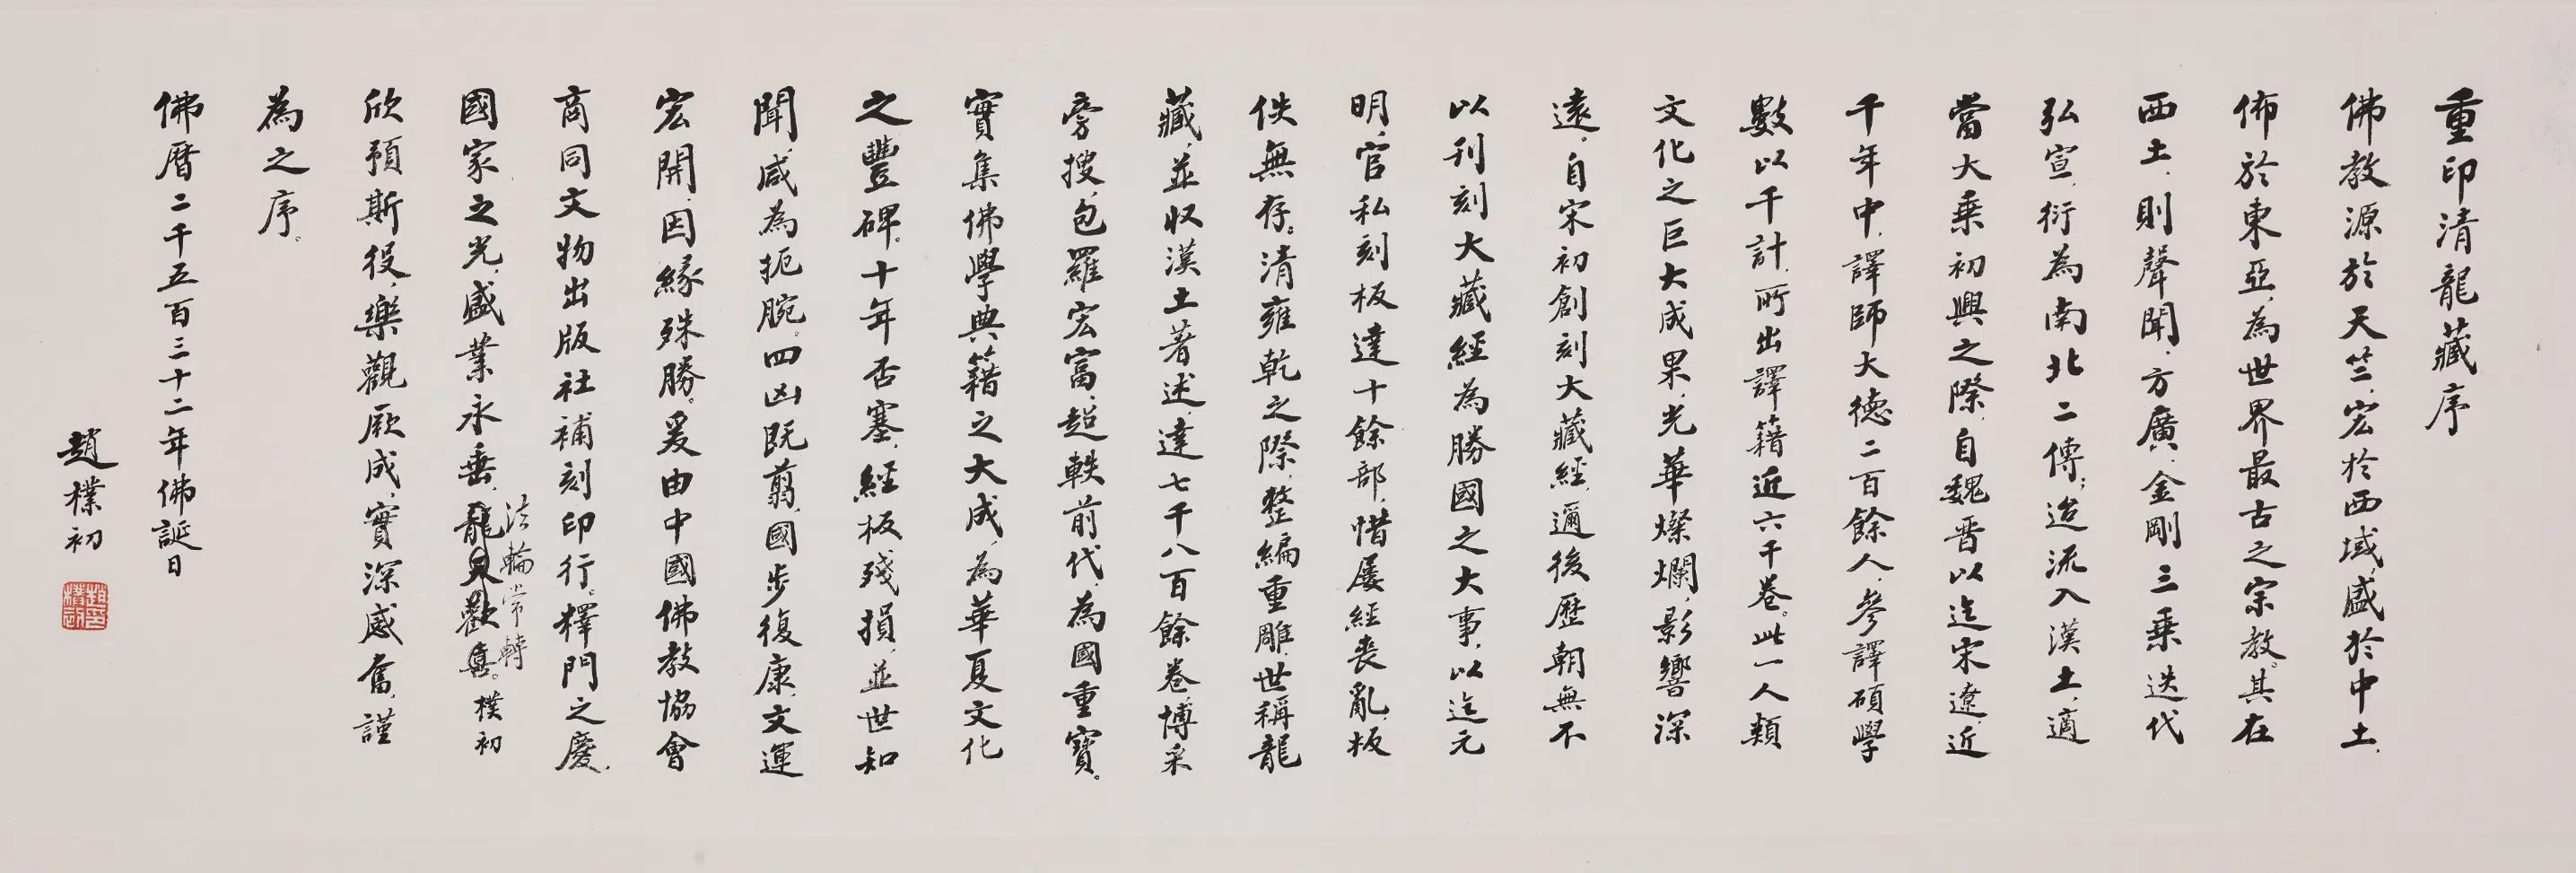 重印清龍藏序
佛教源於天竺,宏於西域,盛於中土,
佈於東亞,為世界最古之宗教。其在
西土,則聲聞、方廣、金剛三乘迭代
弘宣,衍為南北二傳;迨流入漢土,適
當大乘初興之際,自魏晋以迄宋遼,近
千年中,譯師大德二百餘人,參譯碩學
數以千計,所出譯籍近六千卷。此一人類
文化之巨大成果,光華燦爛,影響深
遠。自宋初創刻大藏經,邇後歷朝無不
以刊刻大藏經為勝國之大事,以迄元
明,官私刻板達十餘部,惜屡經喪亂,板
佚無存。清雍乾之際,整編重雕,世稱龍
藏,並収漢土著述,達七千八百餘卷,博采
旁搜,包羅宏富,超軼前代,為國重寶。
實集佛學典籍之大成,為華夏文化
之豐碑。十年否塞,經板殘損,並世知
聞,咸為扼腕。四凶既翦,國步復康,文運
宏開,因緣殊勝。爰由中國佛教協會
商同文物出版社補刻印行。釋門之慶,
國家之光,盛業永垂,龍天歡喜。樸初
法輪常轉
欣預斯役,樂觀厥成,實深感奮,謹
為之序。
佛曆二千五百三十二年佛誕日
趙樸初
趙樸初印